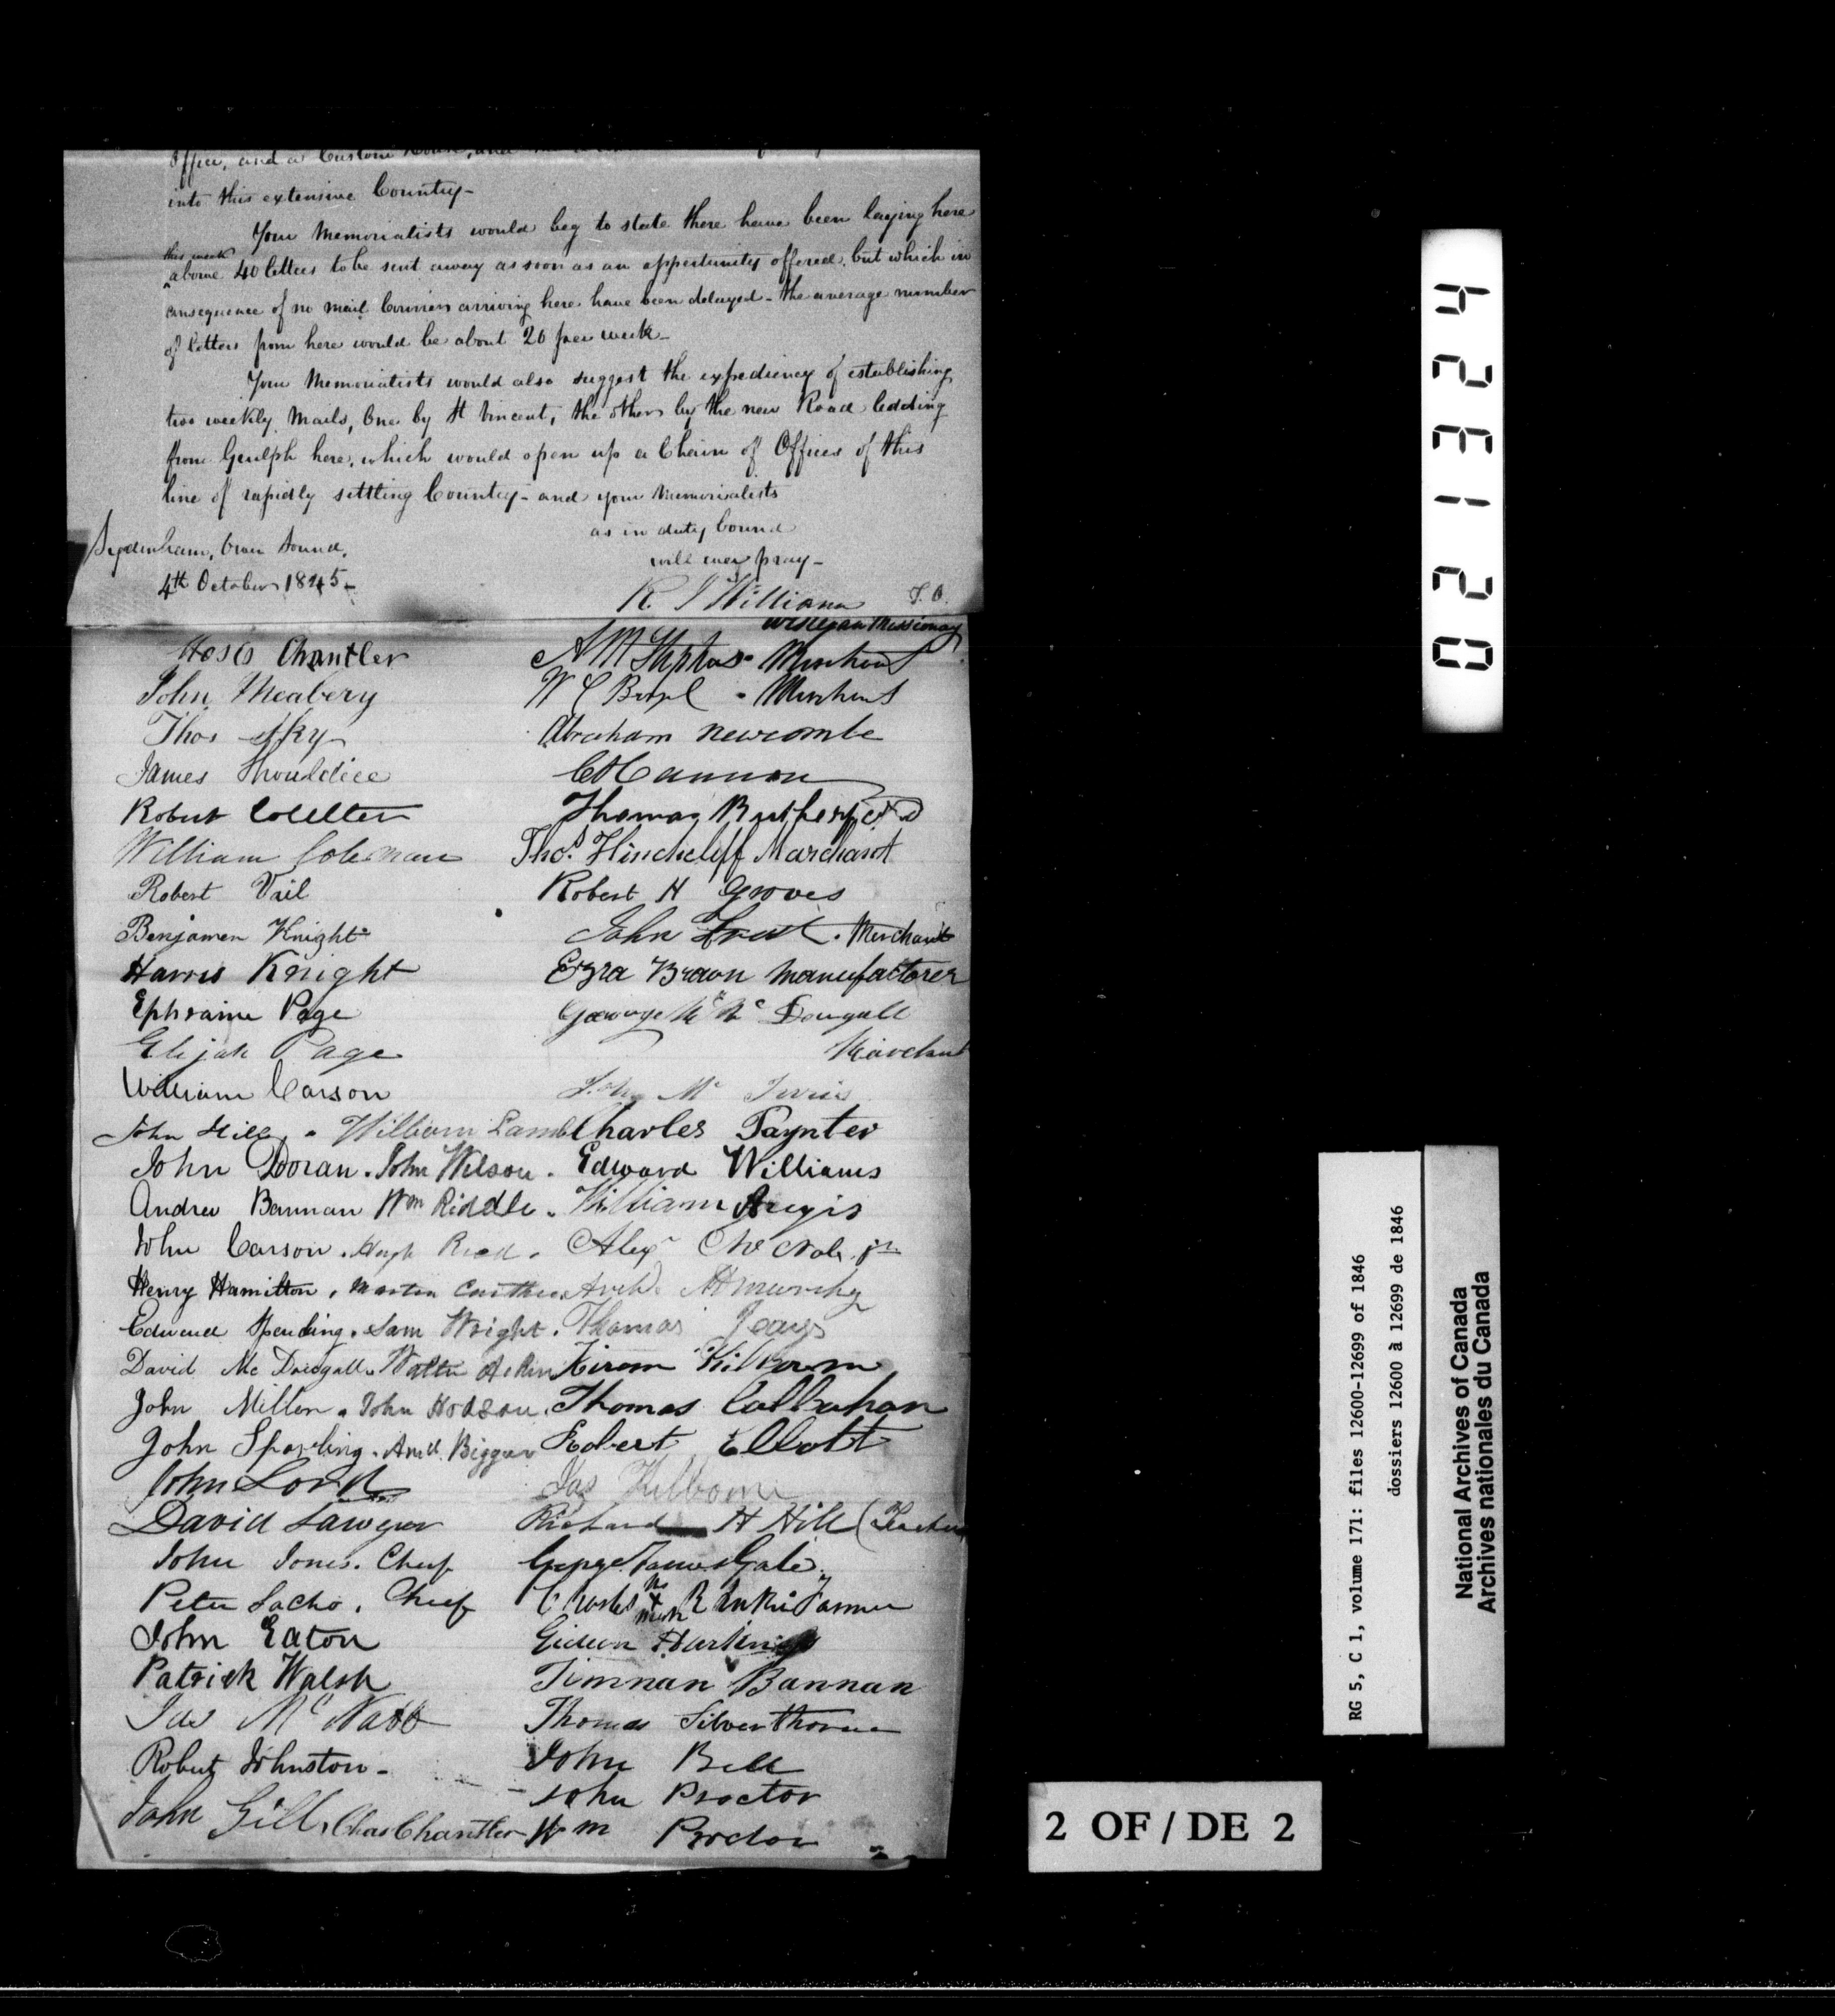 Office, and a Custom House, and
into this extensive Country-
Your Memorialists would beg to state there have been laying here
this week
above 40 letters to be sent away as soon as an oppertunity offered, but which in
consequence of no mail Courier arriving here have been delayed - the average number
of letters from here would be about 20 per week-
Your Memorialists would also suggest the expediency of establishing
two weekly Mails, One by St Vincent, the other by the new Road ledding
from Geulph here, which would open up a Chain of Offices of this
line of rapidly settling Country - and your Memorialists
as in duty bound
will ever pray-
Sydenham, Owen Sound,
4th October 1845-
R I Williams J. P.
Wesleyan Missionary
Moses Chantler
A M Stephens - Merchant
John Meabery
W C Boyd - Merchant
Thos
Abraham Newcombe
James Shouldice
Cannon
Robert Coulter
Thomas Rutherford
William Coleman
Thos. Hinchcliff Marchant
Robert Vail
Robert H Groves
Benjamen Knight
John Frost. Merchant
Harris Knight
Ezra Brown Manufactorer
Ephraim Page
George Mc Dougall
Elijah Page
Marchant
William Carson
John Mc
John Hill. William Lamb Charles Paynter
John Doran. John Wilson. Edward Williams
Andrew Bannan Wm Riddle. William
John Carson. Hugh Reed. Alexr Mc Nab jr
Henry Hamilton, Martin Arch McMurchy
Edward Spending. Sam Wright. Thomas Jeays
David Mc Dougall. Walter Hiram Kilbourn
John Miller. John Hodson. Thomas Callahan
John Sparling. And. Biggar Robert Elliott
John Lord
Jas Kilborne
David Sawyer
Richard H Hill (Teacher
John Jones. Chief
George James Gale
Peter Sacho. Chief
Charles Rankin
John Eaton
Gideon Harkins
Patrick Walsh
Timnan Bannan
Jas McNabb
Thomas Silverthorne
Robert Johnston-
John Bell
John Proctor
John Gill, Chas Chantler Wm Proctor
021324
RG 5, C 1, volume 171: files 12600-12699 of 1846
dossiers 12600 à 12699 de 1846
National Archives of Canada
Archives nationales du Canada
2 OF/DE 2